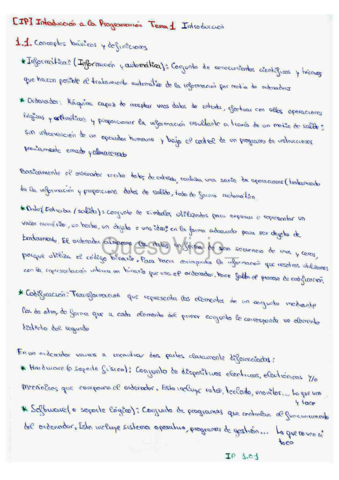 [IP] Introducción a la Programación Tema 1 Introducción
1.1. Conceptos básicos y definiciones
* Informática: (Información y automática): Conjunto de conocimientos científicos y técnicos
que hacen posible el tratamiento automático de la información por medio de ordenadores
* Ordenador: Máquina capaz de aceptar unos datos de entrada, efectuar con ellos operaciones
lógicas y aritméticas y proporcionar la información resultante a través de un medio de salida:
sin intervención de un operador humano y bajo el control de un programa de instrucciones
previamente creado y almacenado
Básicamente el ordenador recibe datos de entrada, realiza una serie de operaciones (tratamiento
de la información y proporciona datos de salida, todo de forma automática
* Dato (Entrada / salida): Conjunto de símbolos utilizados para expresar o representar un
valor numérico, un texto, un objeto o una idea en la forma adecuada para ser objeto de
tratamiento. El ordenador los datos en forma de una secuencia de unos y ceros,
porque utiliza el código binario. Para hacer la información que nosotros utilizamos
con la representación interna en binario que usa el ordenador, hace falta el proceso de codificación.
QuesoViejo
* Codificación: Transformación que representa los elementos de un conjunto mediante
los de otro, de forma que a cada elemento del primer conjunto le corresponda un elemento
distinto del segundo
En un ordenador vamos a encontrar dos partes claramente diferenciadas:
* Hardware (o soporte físico): Conjunto de dispositivos eléctricos, electrónicos y/o
mecánicos que componen el ordenador. Esto incluye ratón, teclado, monitor... Lo que veo
y toco
* Software (o soporte lógico): Conjunto de programas que controlan el funcionamiento
del ordenador. Esto incluye sistema operativo, programas de gestión... Lo que no veo ni
toco
IP 1.0.1